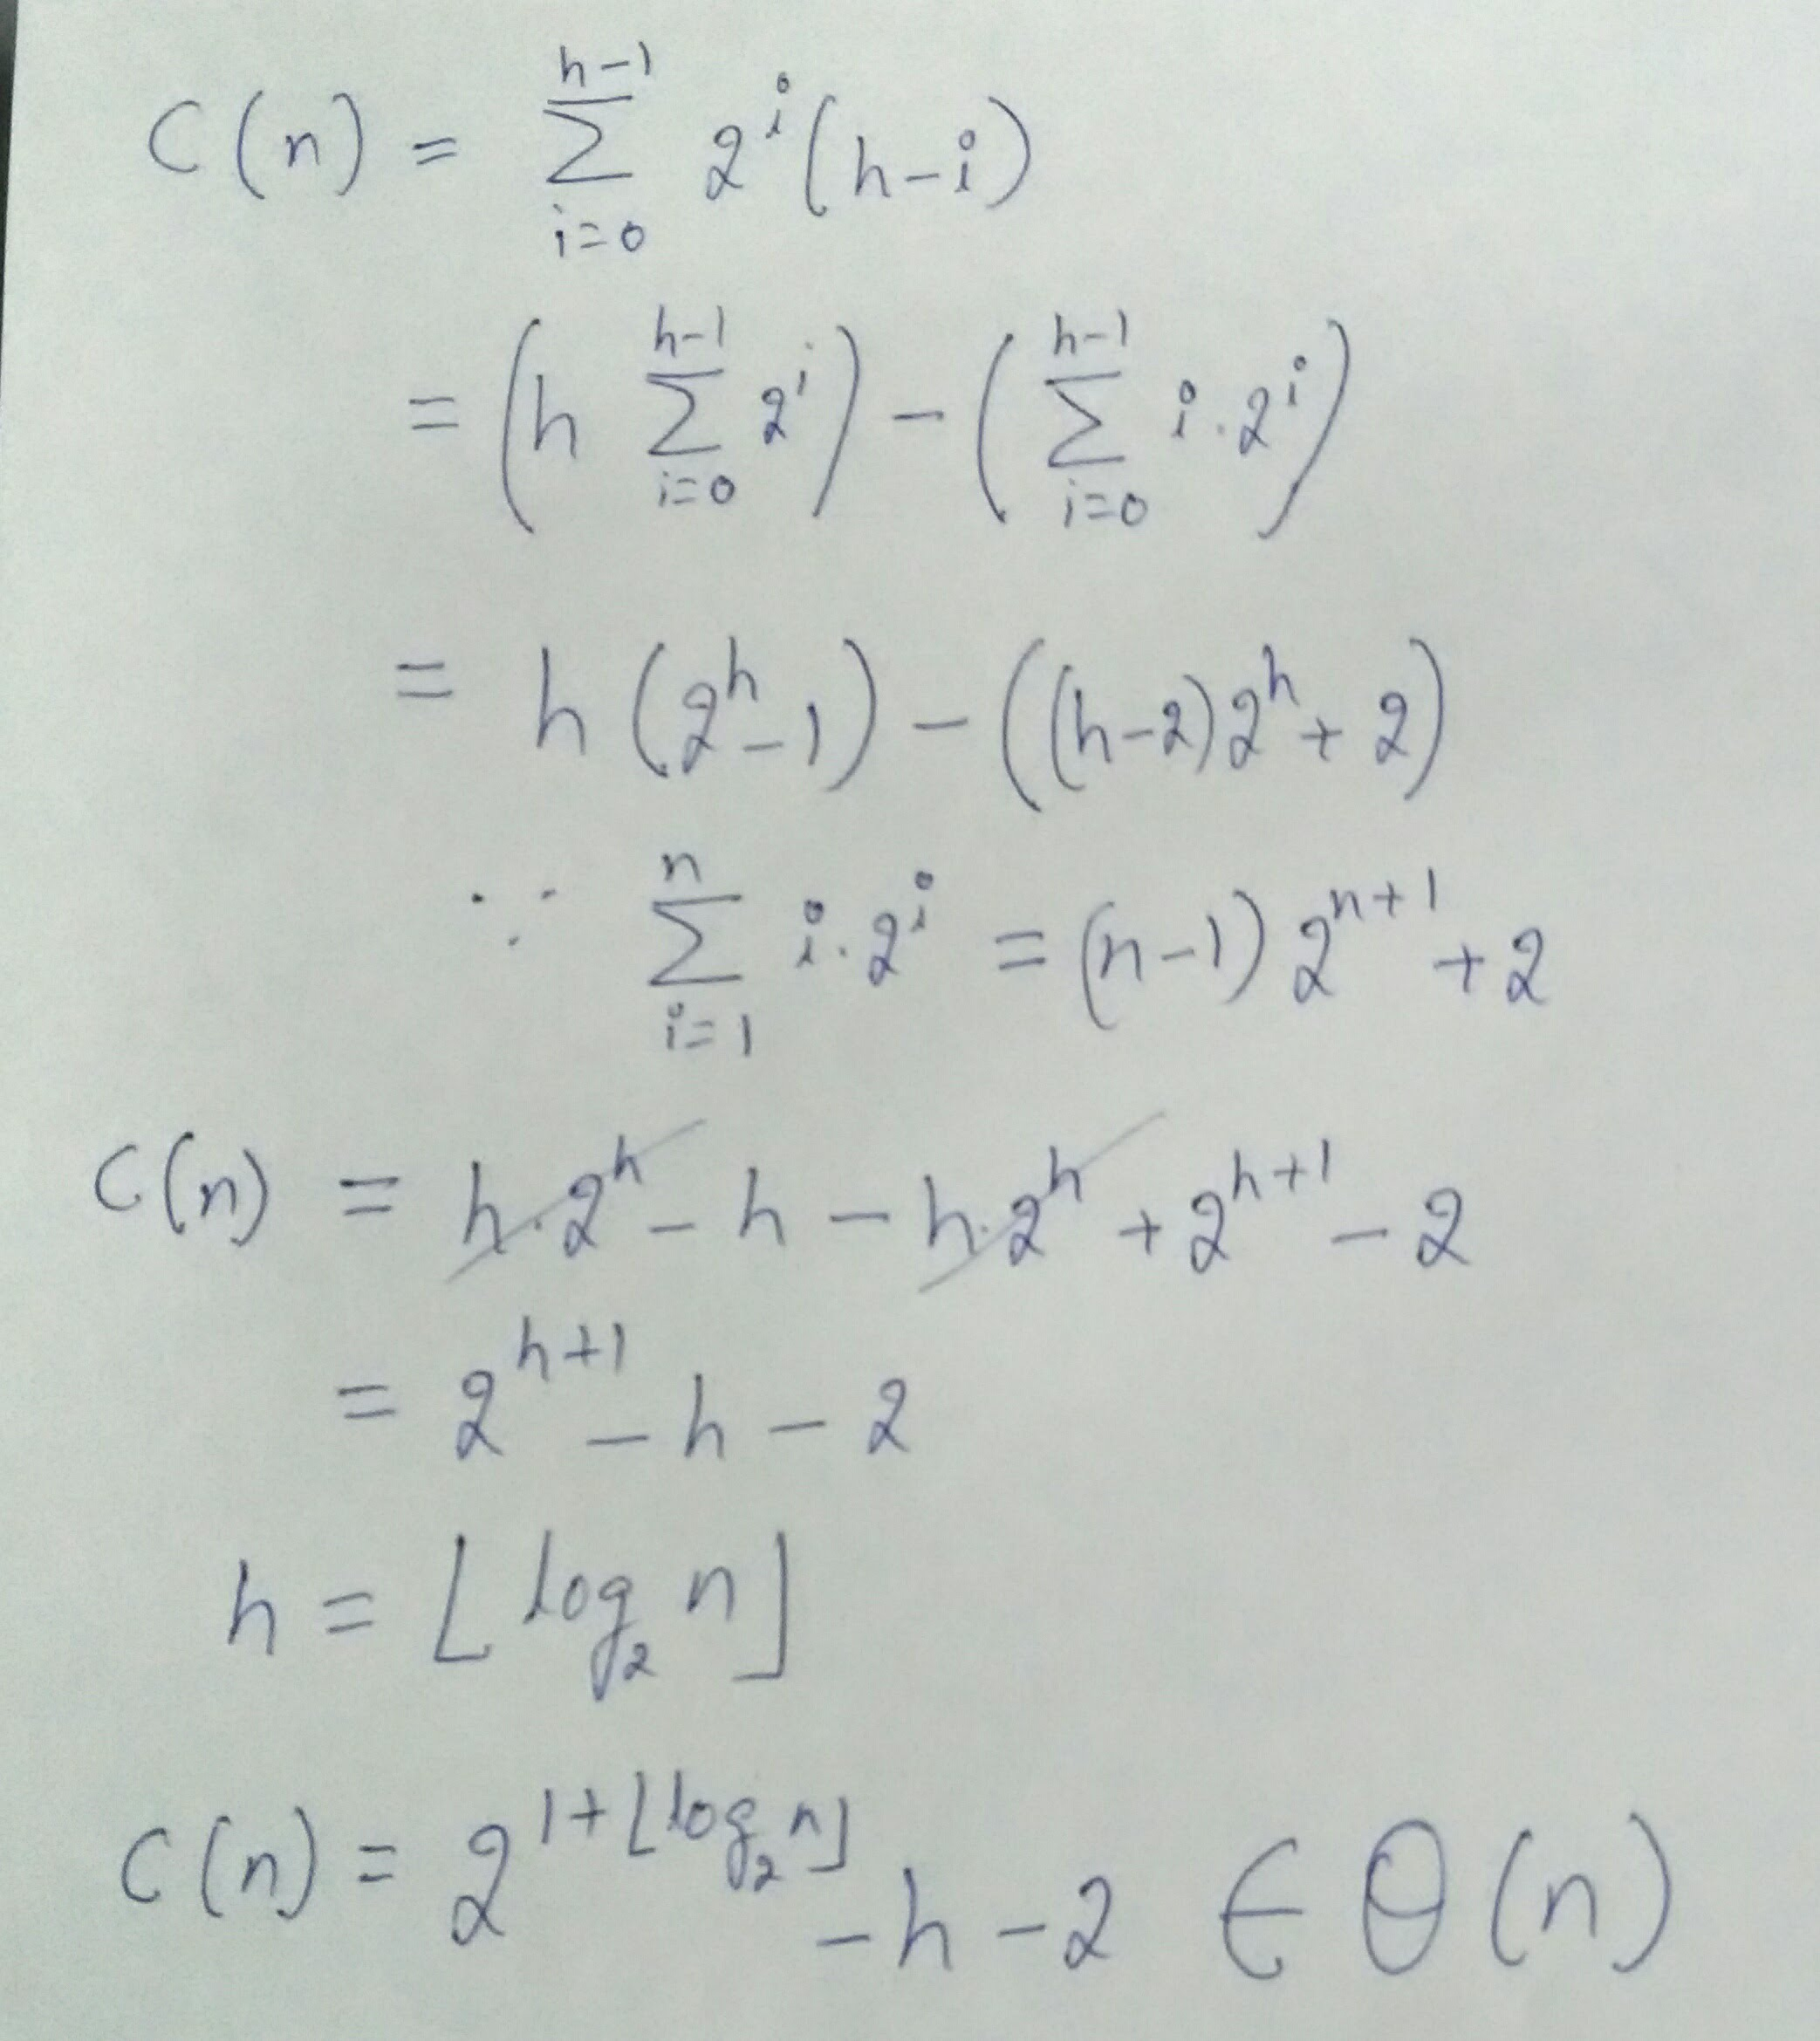 C(n) = \sum_{i=0}^{h-1} 2^i (h-i)
= \left( h \sum_{i=0}^{h-1} 2^i \right) - \left( \sum_{i=0}^{h-1} i \cdot 2^i \right)
= h(2^h - 1) - ((h-2)2^h + 2)
∵ \sum_{i=1}^{n} i \cdot 2^i = (n-1) 2^{n+1} + 2
C(n) = h \cdot 2^h - h - h \cdot 2^h + 2^{h+1} - 2
= 2^{h+1} - h - 2
h = ⌊log_2 n⌋
C(n) = 2^{1+⌊log_2 n⌋} - h - 2 ∈ Θ(n)